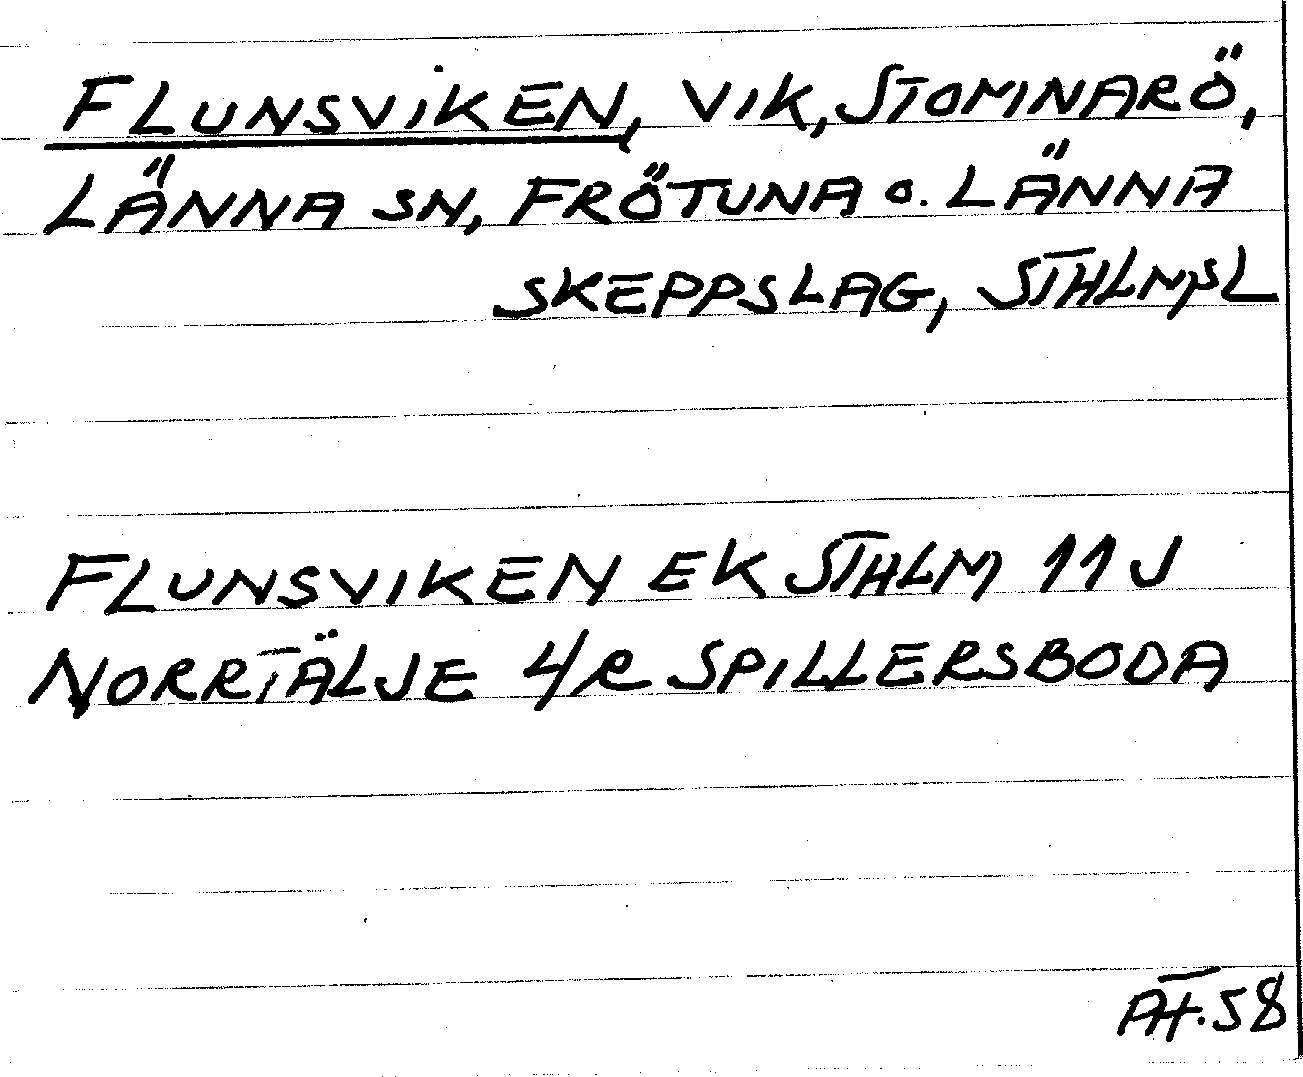 FLUNSVIKEN, VIK, STOMNARÖ,
LÄNNA SN, FRÖTUNA O. LÄNNA
SKEPPSLAG, STHLMSL
FLUNSVIKEN EK STHLM 11 J
NORRTÄLJE 4/R SPILLERSBODA